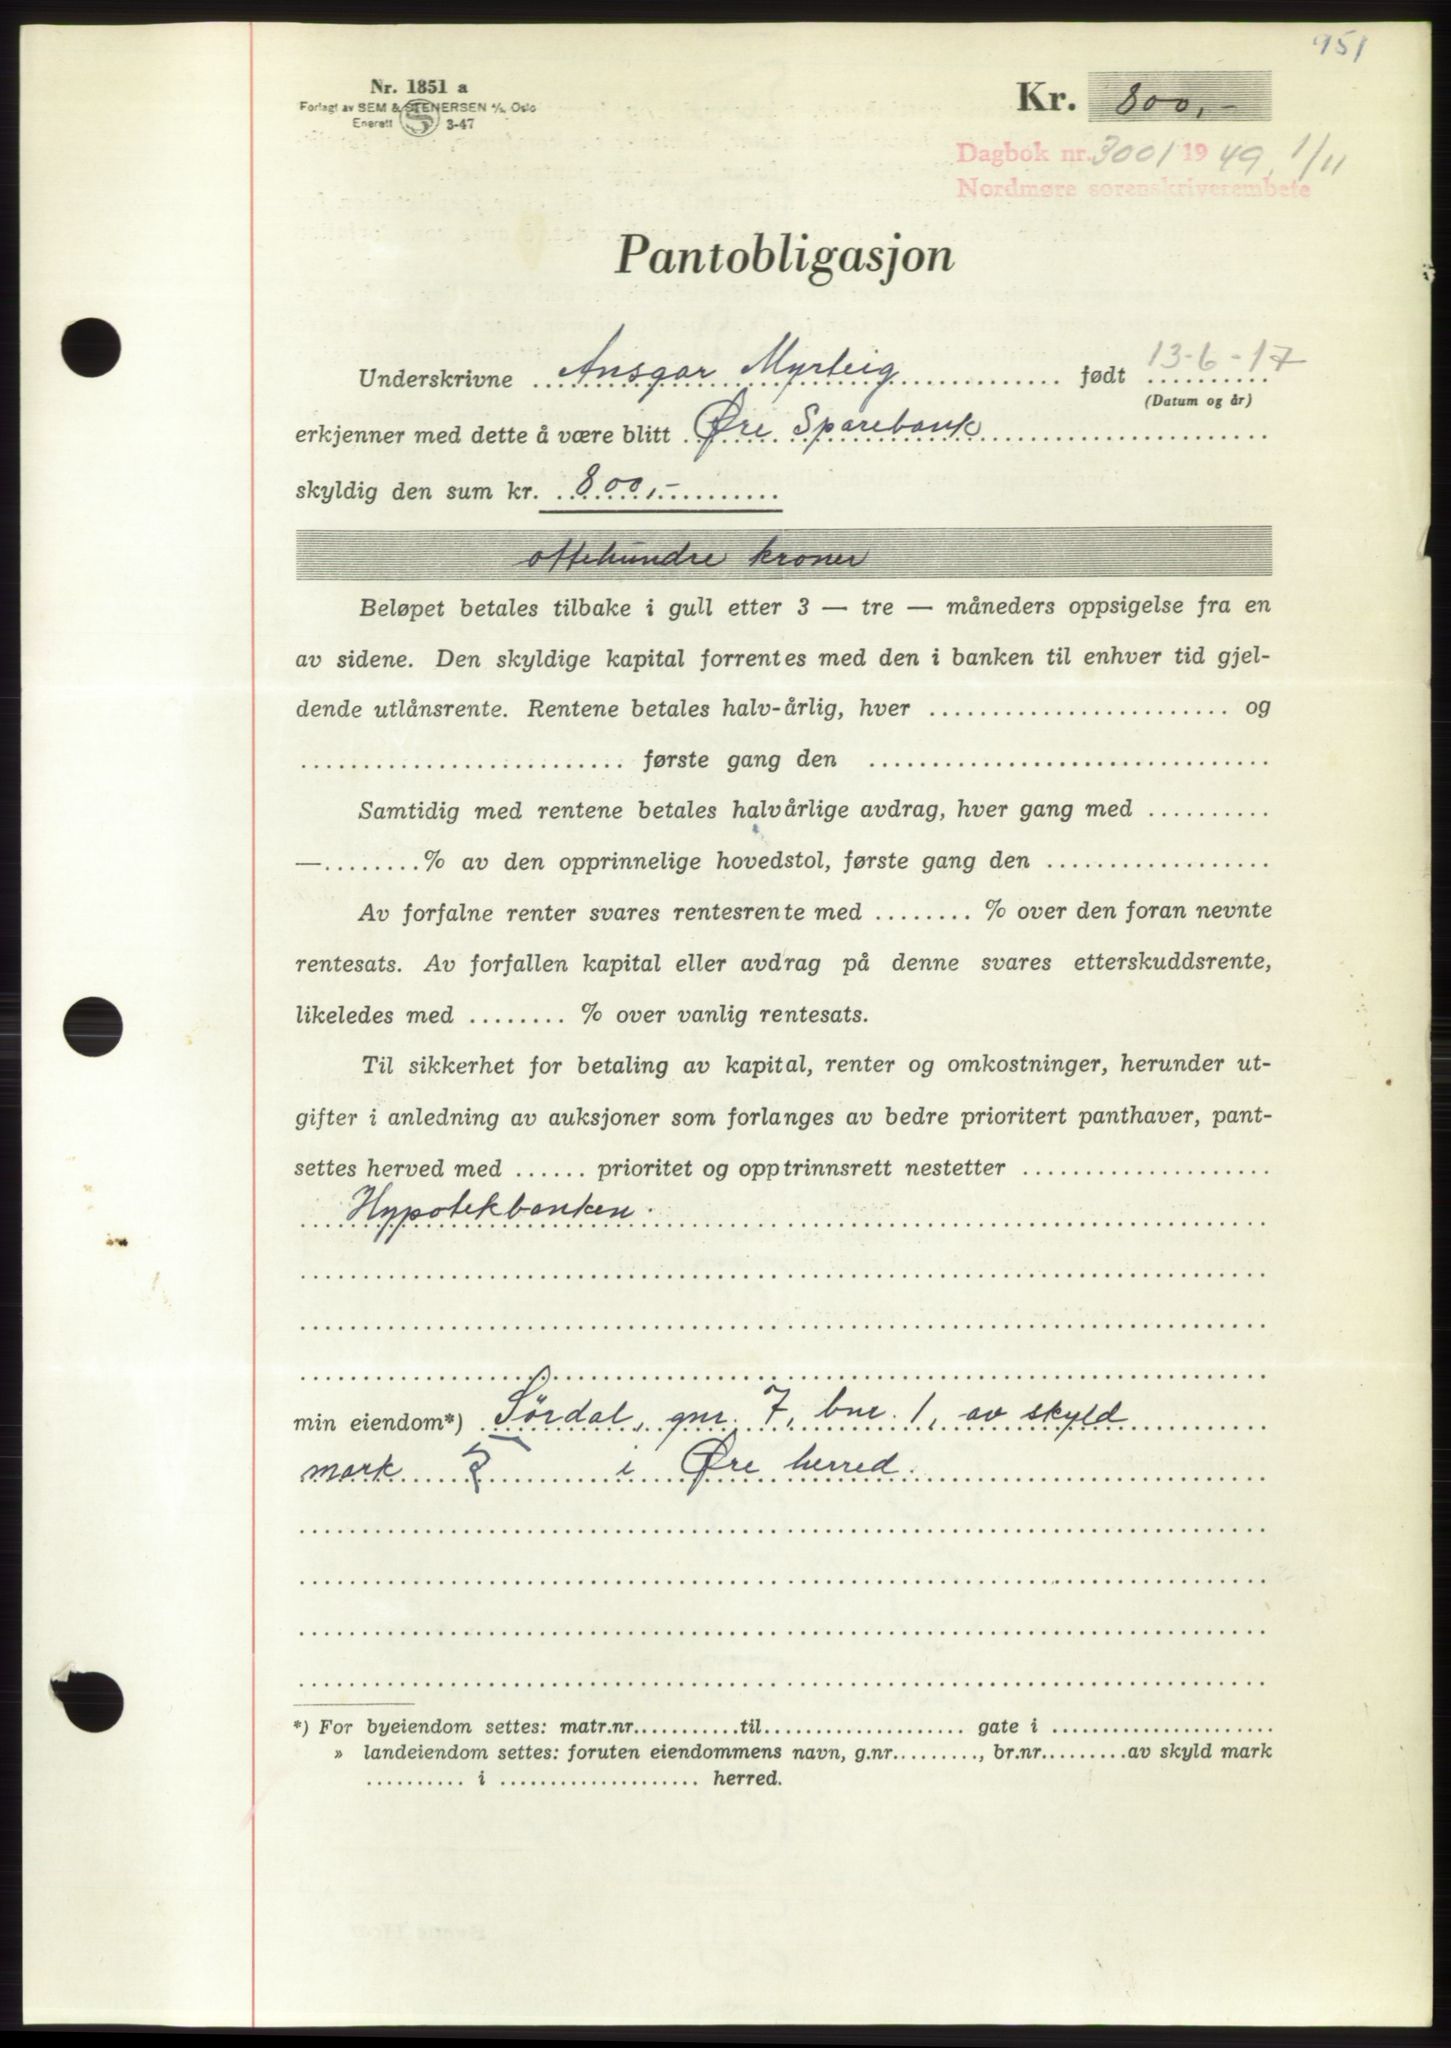 951
Nr. 1851 a
Forlagt av SEM & STENERSEN A/S, Oslo
Enerett S 3-47
Kr. 800,-
Dagbok nr. 3001 1949, 1/11
Nordmøre sorenskriverembete
Pantobligasjon
Underskrivne Ansgar Myrteig født 13-6-17
(Datum og år)
erkjenner med dette å være blitt Øre Sparebank
skyldig den sum kr. 800,-
ottehundre kroner
Beløpet betales tilbake i gull etter 3 — tre — måneders oppsigelse fra en
av sidene. Den skyldige kapital forrentes med den i banken til enhver tid gjel-
dende utlånsrente. Rentene betales halv-årlig, hver .......... og
.......... første gang den ..........
Samtidig med rentene betales halvårlige avdrag, hver gang med ..........
—........% av den opprinnelige hovedstol, første gang den ..........
Av forfalne renter svares rentesrente med ........ % over den foran nevnte
rentesats. Av forfallen kapital eller avdrag på denne svares etterskuddsrente,
likeledes med ........ % over vanlig rentesats.
Til sikkerhet for betaling av kapital, renter og omkostninger, herunder ut-
gifter i anledning av auksjoner som forlanges av bedre prioritert panthaver, pant-
settes herved med ...... prioritet og opptrinnsrett nestetter ..........
Hypotekbanken.
min eiendom*) Sördal, gnr. 7, bnr. 1, av skyld
mark 2 i Øre herred.
*) For byeiendom settes: matr.nr...........til.................... gate i ......................
» landeiendom settes: foruten eiendommens navn, g.nr........., br.nr.........av skyld mark
.......... i .................... herred.